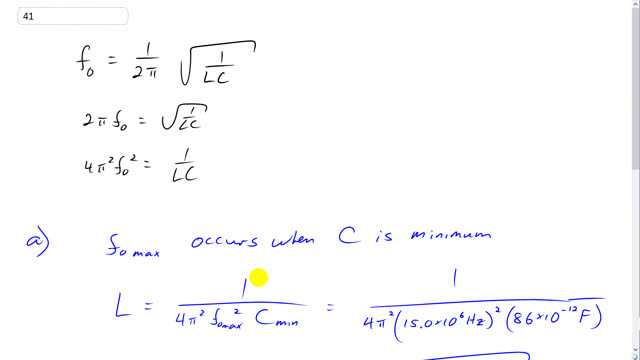 41
f₀ = 1/2π √(1/LC)
2π f₀ = √(1/LC)
4π² f₀² = 1/LC
a) f₀ max occurs when C is minimum
L = 1/(4π² f₀max² Cmin) = 1/(4π² (15.0×10⁶ Hz)² (86×10⁻¹² F))